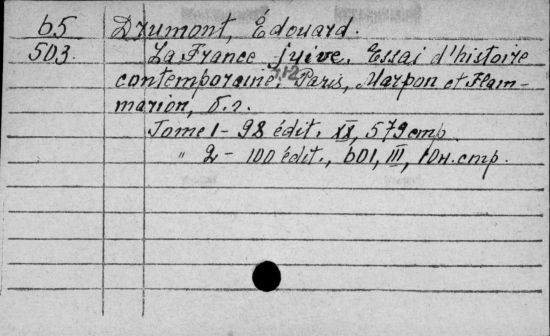 65 Drumont, Édouard.
503. La France juive. Essai d'histoire
contemporaine. T.1-2. Paris, Marpon et Flam-
marion, б.г.
Tome 1 - 98 édit. XX, 579 стр.
" 2 - 100 édit., 601, III, 10н.стр.